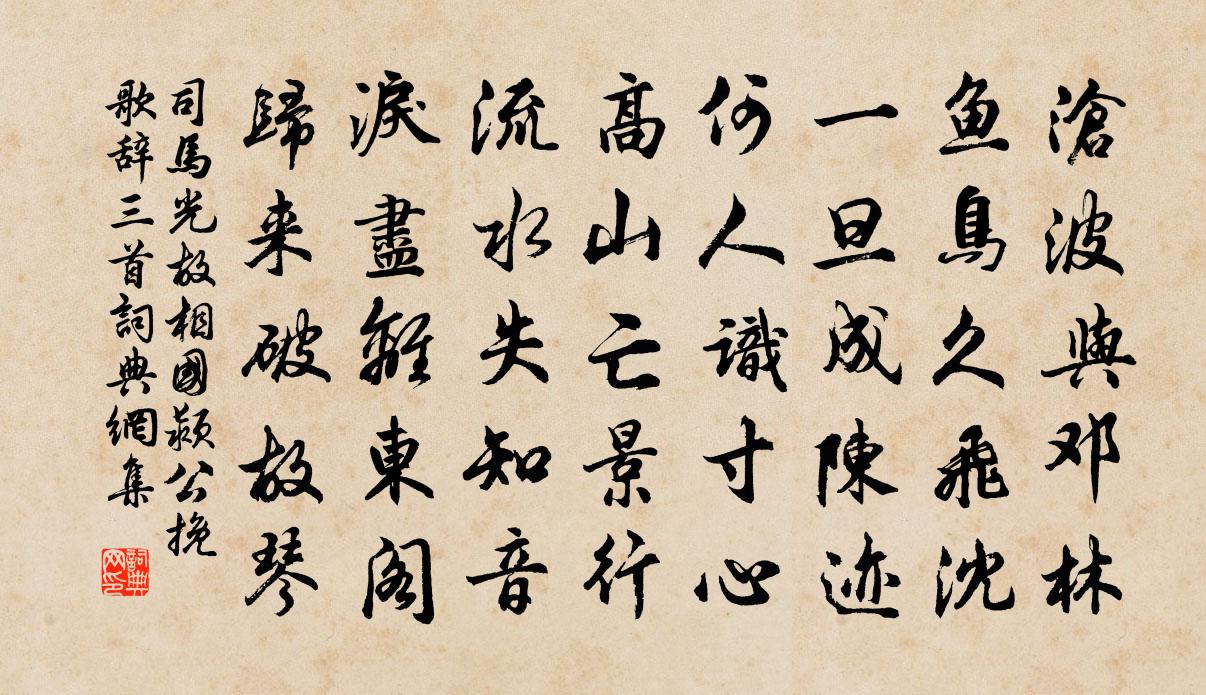 滄波與邓林
魚鳥久飛沈
一旦成陳迹
何人識寸心
高山亡景行
流水失知音
淚盡離東阁
歸来破故琴
司馬光故相國颍公挽
歌辞三首詞典網集
詞典网印